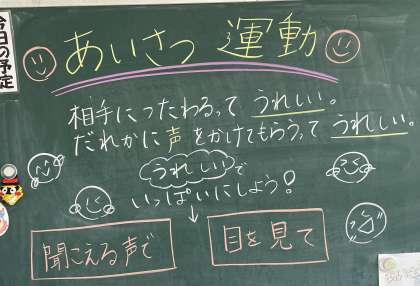 今日の予定
あいさつ 運動
相手につたわるって うれしい。
だれかに 声 をかけてもらうって うれしい。
うれしい で
いっぱいにしよう！
↓
聞こえる声で
目を見て